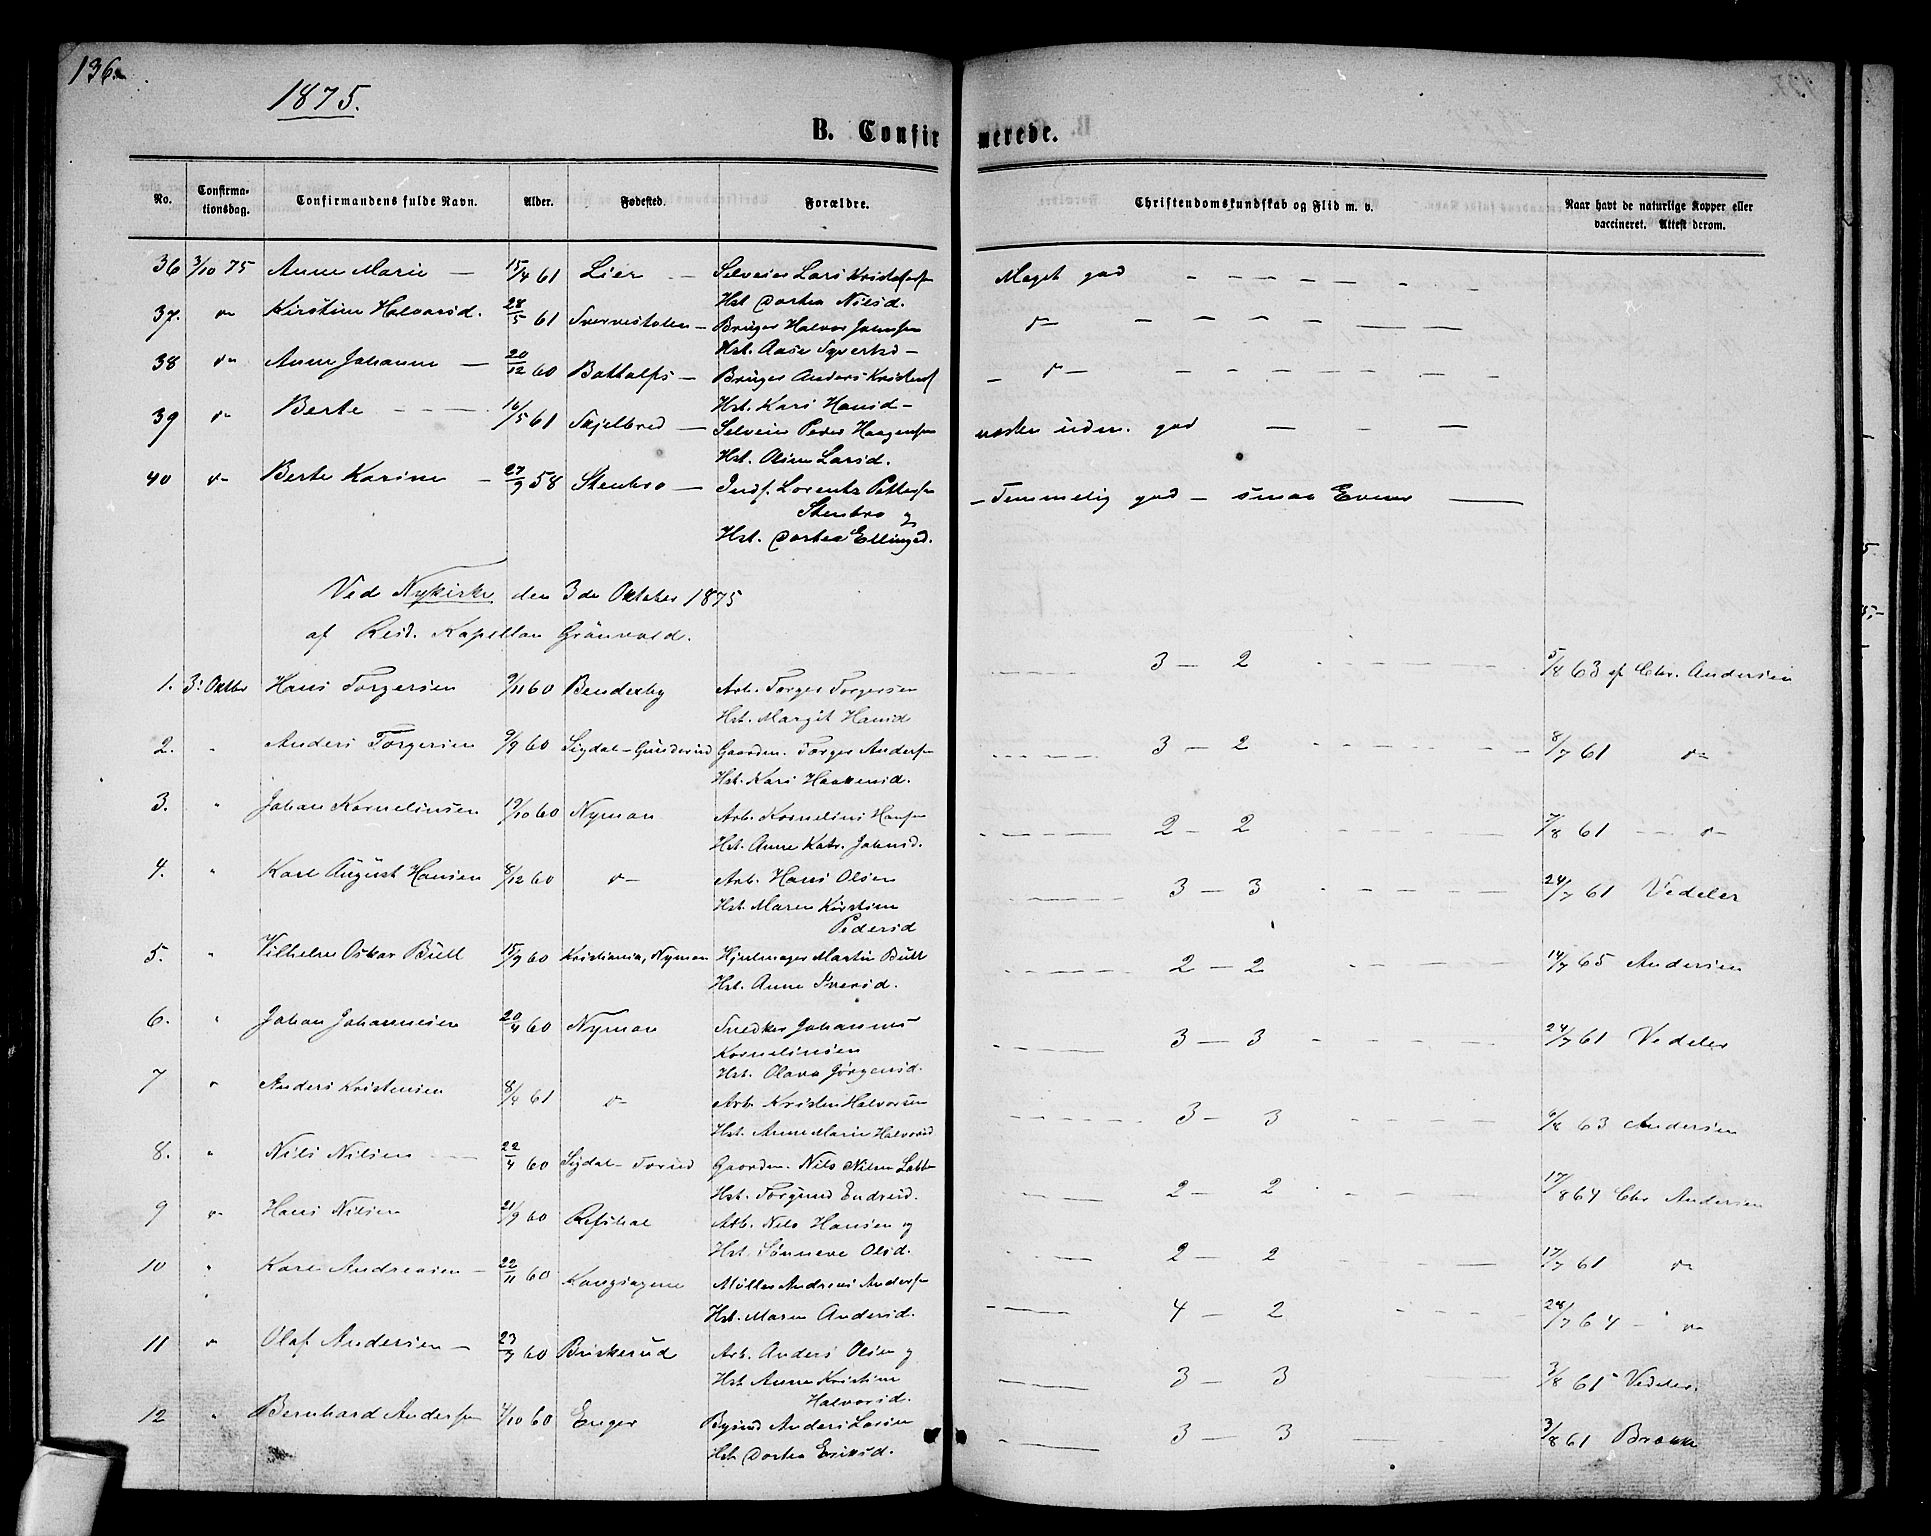 136.
1875.
B. Confirmerede.
No. Confirmationsdag. Confirmandens fulde Navn. Alder. Fødested. Forældre. Christendomskundskab og Flid m. v. Naar havt de naturlige Kopper eller vaccineret. Attest derom.
36 3/10 75 Anne Marie — 15/4 61 Lier — Selveier Lars Kristofersen Meget god
Hst. Dortea Nilsd.
37. do Kirstine Halvorsd. 28/5 61 — Bruger Halvor Johnsen do
Hst. Aase Syvertsd —
38 do Anne Johanne — 20/12 60 Bottolfs — Bruger Anders Kristens — do —
Hst. Kari Hansd —
39 do Berte — 16/5 61 Skjelbred — Selveier Peder Haagensen næsten uden. god
Hst. Oline Larsd.
40 do Berte Karine — 27/9 58 Stenbro — Inds. Lorents Pettersen — Temmelig god — smaa Evner
Stenbro og
Hst. Dortea Ellingsd.
Ved Nykirke den 3de Oktober 1875
af Resd. Kapellan Grönvold.
1. 3: Oktbr Hans Torgersen 9/11 60 Benderby Arb. Torger Torgersen 3 — 2 5/8 63 af Chr. Andersen
Hst. Margit Hansd
2. " Anders Torgersen 9/9 60 Sigdal — Gunderud Gaardm. Torger Andersen 3 — 2 8/7 61 do
Hst. Kari Haakensd.
3. " Johan Kornelinsen 19/10 60 Nymoen Arb. Kornelius Hansen 2 — 2 7/8 61 do
Hst. Anne Katr. Johnsd.
4. " Karl August Hansen 8/12 60 do Arb. Hans Olsen 3 — 3 24/7 61 Vedeler
Hst. Maren Kirstine
Pedersd
5. " Vilhelm Oskar Bull 15/9 60 Kristiania, Nymoen Hjulmager Martin Bull 2 — 2 14/7 65 Andersen
Hst. Anne Iversd.
6. " Johan Johannesen 20/4 60 Nymoen Snedker Johannes 3 — 3 24/7 61 Vedeler
Kornelinsen
Hst. Olava Jörgensd.
7 " Anders Kristensen 8/4 61 do Arb. Kristen Halvorsen 3 — 3 9/8 63 Andersen
Hst. Anne Marie Halvorsd
8. " Nils Nilsen 22/4 60 Sigdal — Gaardm. Nils Nilsen 2 — 2 17/8 64 Chr Andersen
Hst. Torgund Endresd.
9 do Hans Nilsen 21/9 60 Refsdal Arb. Nils Hansen og 2 — 2 17/7 61 do
Hst. Sönneve Olsd.
10 " Karl Andreasen — 22/11 60 Kongsagene Möller Andreas Andersen 4 — 2 28/7 64 — do
Hst. Maren Andersd.
11 do Olaf Andersen — 23/7 60 Buskerud Arb. Anders Olsen og 3 — 3 3/8 61 Vedeler
Hst Anne Kristine
Halvorsd.
12 " Bernhard Andersen 4/10 60 Enger Anders Larsen 3 — 3 3/8 61
Hst Dortea Eriksd.